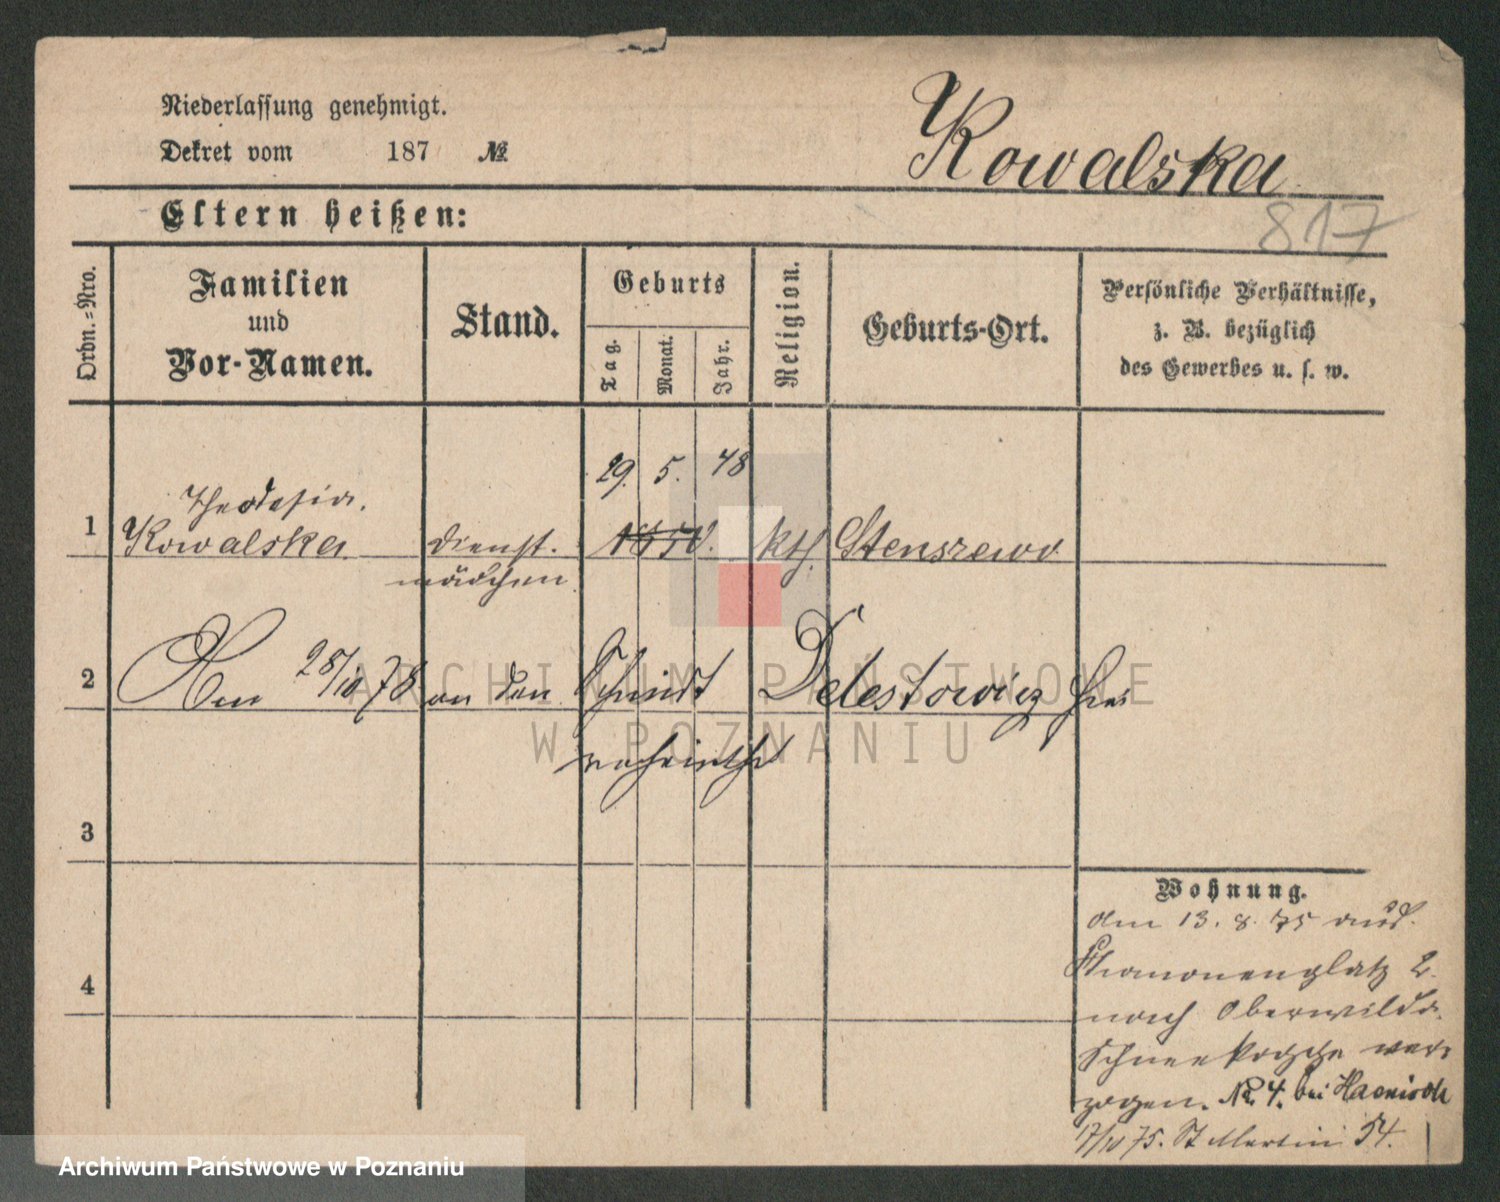 Niederlassung genehmigt.
Dekret vom 187 №
Kowalska
817
Eltern heißen:
Ordn.=Nro.
Familien
und
Vor-Namen.
Stand.
Geburts
Tag.
Monat.
Jahr.
Religion.
Geburts-Ort.
Persönliche Verhältnisse,
z. B. bezüglich
des Gewerbes u. s. w.
29. 5. 48
Theodosia.
1 Kowalska Dienst- 1850. kth. Stenszewo
mädchen
2 Am 28/10 78 an den Schmidt Delestowicz hier
verheirathet
3
4
Wohnung.
Am 13. 8. 75 aus
platz 2.
nach Oberwilda
verzogen. No. 4. bei
17/11 75. St Martin 54.
ARCHIWUM PAŃSTWOWE
W POZNANIU
Archiwum Państwowe w Poznaniu